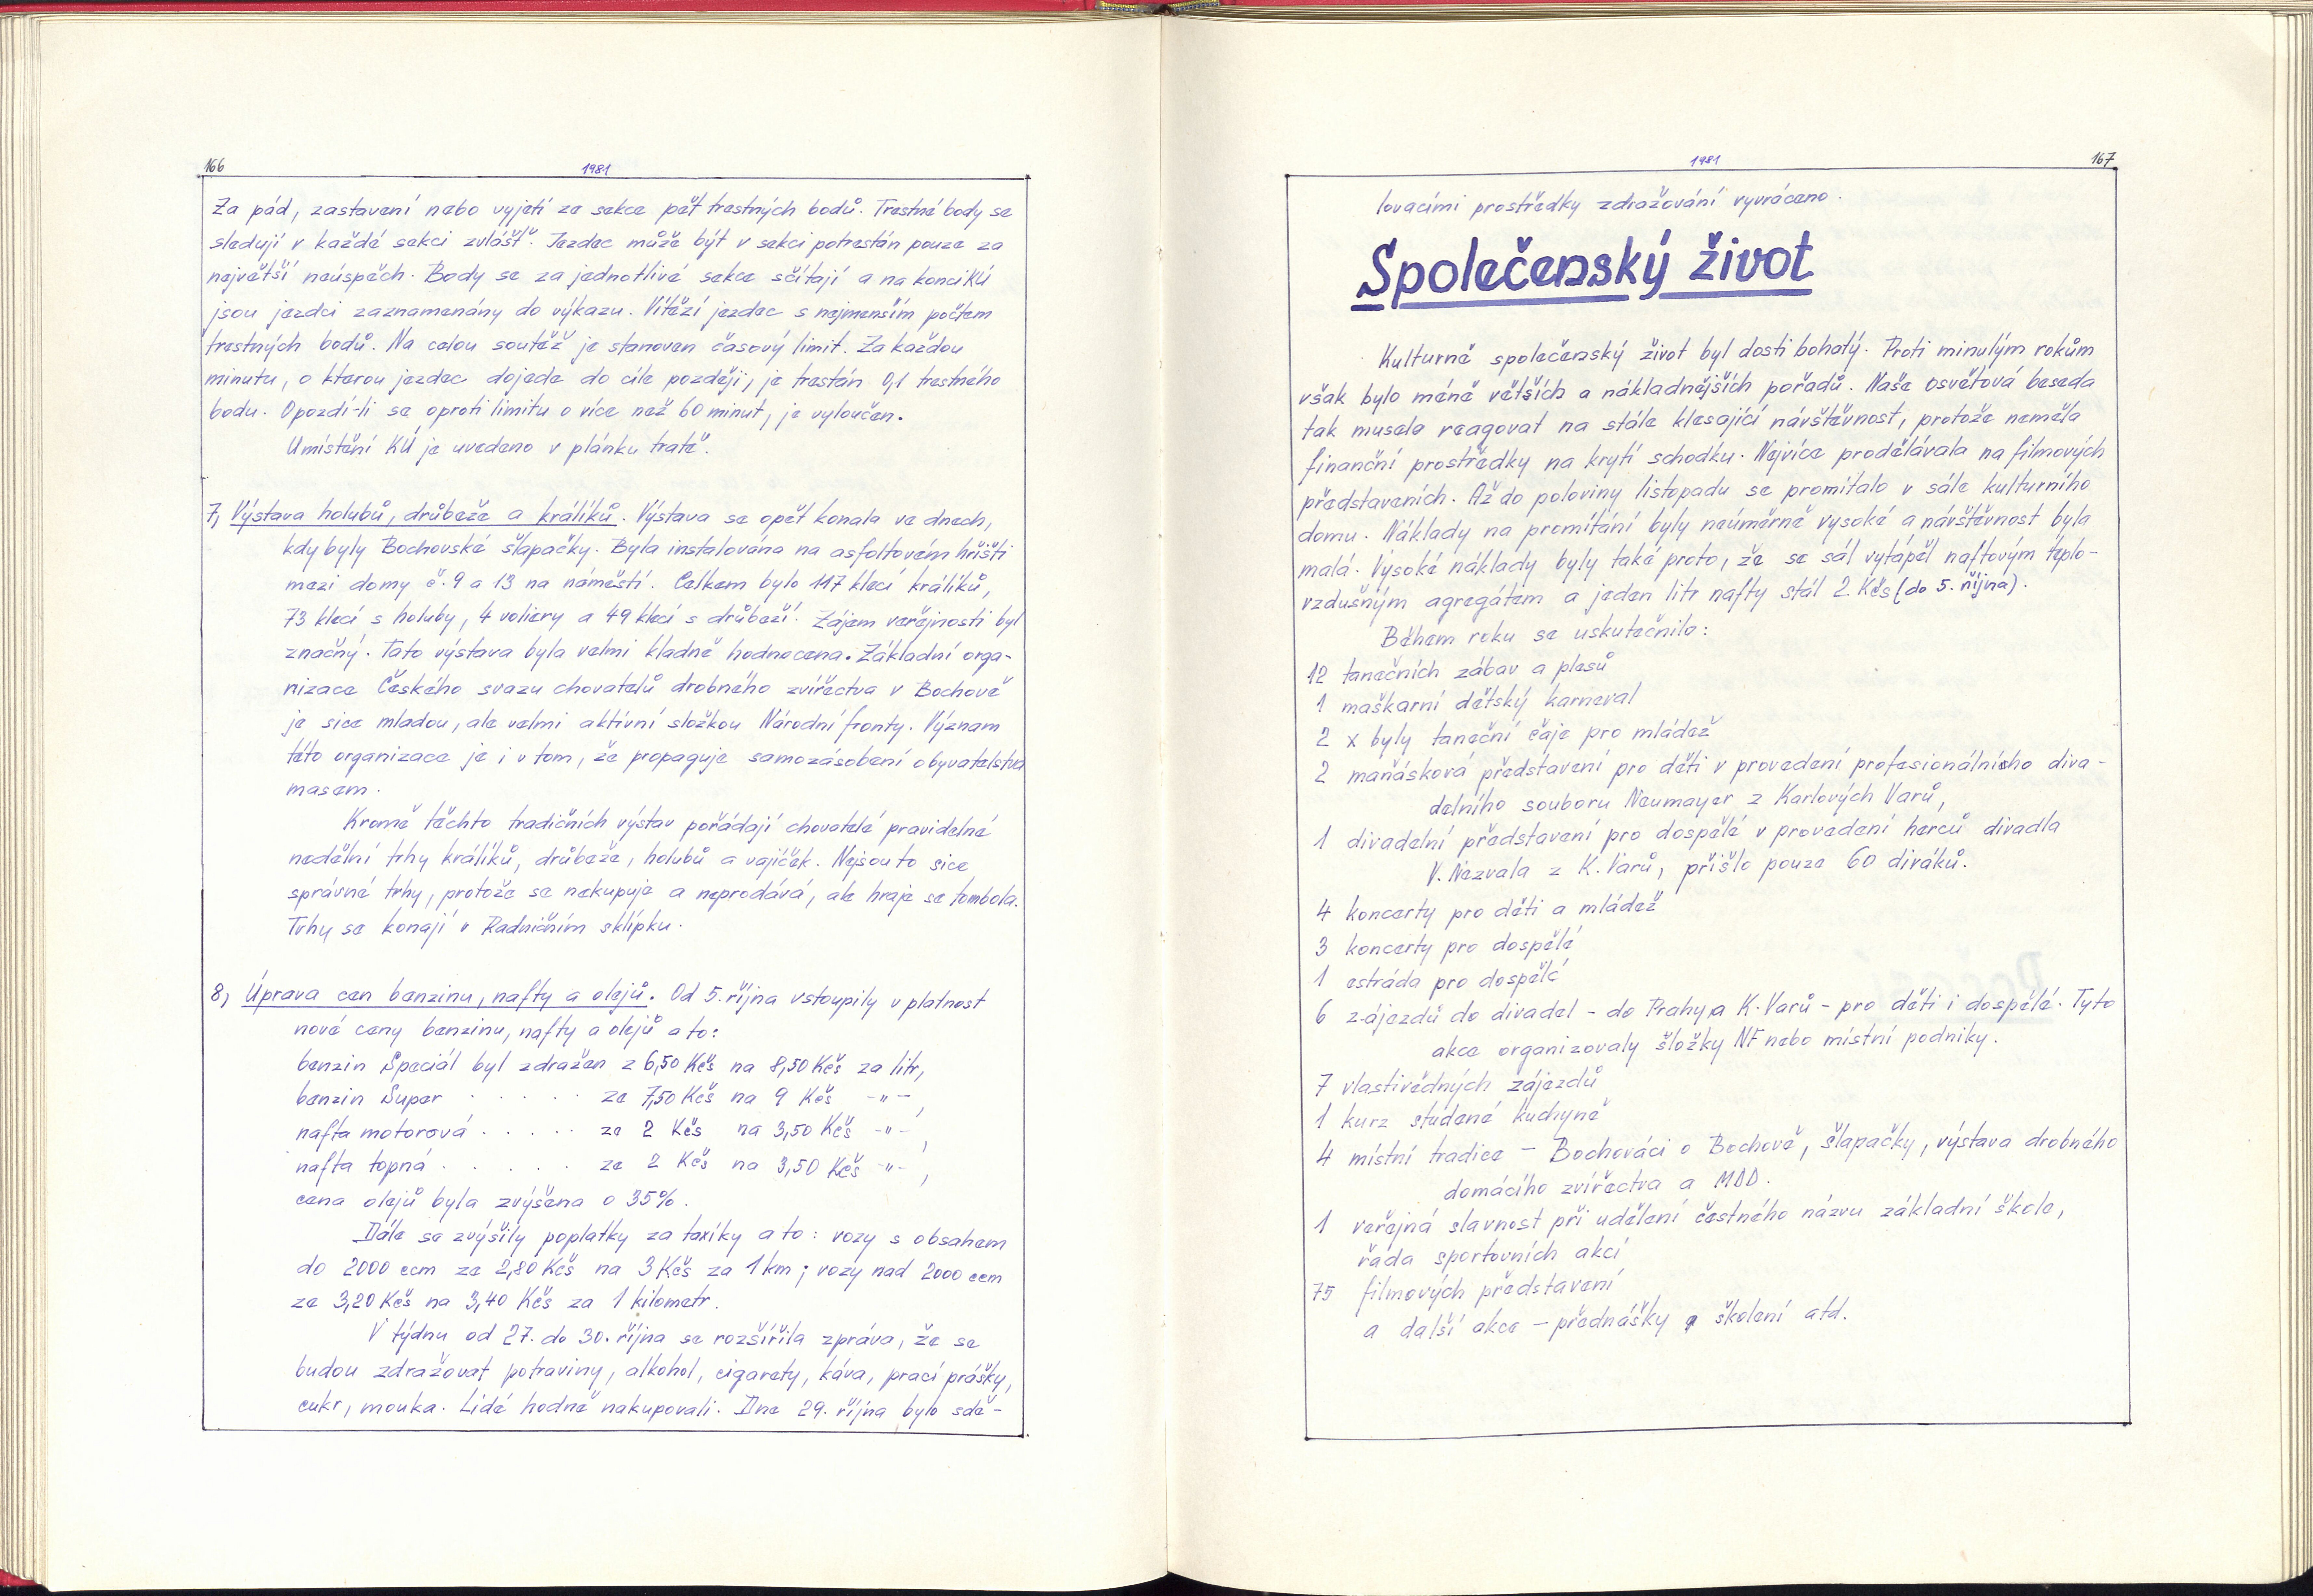 166
1981
Za pád, zastavení nebo vyjetí ze sekce pět trestných bodů. Trestné body se
sledují v každé sekci zvlášť. Jezdec může být v sekci potrestán pouze za
největší neúspěch. Body se za jednotlivé sekce sčítají a na konci KÚ
jsou jezdci zaznamenány do výkazu. Vítězí jezdec s nejmenším počtem
trestných bodů. Na celou soutěž je stanoven časový limit. Za každou
minutu, o kterou jezdec dojede do cíle později, je trestán 0,1 trestného
bodu. Opozdí-li se oproti limitu o více než 60 minut, je vyloučen.
Umístění KÚ je uvedeno v plánku tratě.
7, Výstava holubů, drůbeže a králíků. Výstava se opět konala ve dnech,
kdy byly Bochovské šlapačky. Byla instalována na asfaltovém hřišti
mezi domy č. 9 a 13 na náměstí. Celkem bylo 117 klecí králíků,
73 klecí s holuby, 4 voliery a 49 klecí s drůbeží. Zájem veřejnosti byl
značný. Tato výstava byla velmi kladně hodnocena. Základní orga-
nizace Českého svazu chovatelů drobného zvířectva v Bochově
je sice mladou, ale velmi aktivní složkou Národní fronty. Význam
této organizace je i v tom, že propaguje samozásobení obyvatelstva
masem.
Kromě těchto tradičních výstav pořádají chovatelé pravidelné
nedělní trhy králíků, drůbeže, holubů a vajíček. Nejsou to sice
správné trhy, protože se nekupuje a neprodává, ale hraje se tombola.
Trhy se konají v Radničním sklípku.
8, Úprava cen benzinu, nafty a olejů. Od 5. října vstoupily v platnost
nové ceny benzinu, nafty a olejů a to:
benzin Speciál byl zdražen z 6,50 Kčs na 8,50 Kčs za litr,
benzin Super . . . . . ze 7,50 Kčs na 9 Kčs -"-,
nafta motorová . . . . . ze 2 Kčs na 3,50 Kčs -"-,
nafta topná . . . . . ze 2 Kčs na 3,50 Kčs -"-,
cena olejů byla zvýšena o 35%.
Dále se zvýšily poplatky za taxíky a to: vozy s obsahem
do 2000 ccm ze 2,80 Kčs na 3 Kčs za 1 km; vozy nad 2000 ccm
ze 3,20 Kčs na 3,40 Kčs za 1 kilometr.
V týdnu od 27. do 30. října se rozšířila zpráva, že se
budou zdražovat potraviny, alkohol, cigarety, káva, prací prášky,
cukr, mouka. Lidé hodně nakupovali. Dne 29. října bylo sdě-
1981
167
lovacími prostředky zdražování vyvráceno.
Společenský život
Kulturně společenský život byl dosti bohatý. Proti minulým rokům
však bylo méně větších a nákladnějších pořadů. Naše osvětová beseda
tak musela reagovat na stále klesající návštěvnost, protože neměla
finanční prostředky na krytí schodku. Nejvíce prodělávala na filmových
představeních. Až do poloviny listopadu se promítalo v sále kulturního
domu. Náklady na promítání byly neúměrně vysoké a návštěvnost byla
malá. Vysoké náklady byly také proto, že se sál vytápěl naftovým teplo-
vzdušným agregátem a jeden litr nafty stál 2 Kčs (do 5. října).
Během roku se uskutečnilo:
12 tanečních zábav a plesů
1 maškarní dětský karneval
2 x byly taneční čaje pro mládež
2 maňásková představení pro děti v provedení profesionálního diva-
delního souboru Neumayer z Karlových Varů,
1 divadelní představení pro dospělé v provedení herců divadla
V. Nezvala z K. Varů, přišlo pouze 60 diváků.
4 koncerty pro děti a mládež
3 koncerty pro dospělé
1 estráda pro dospělé
6 zájezdů do divadel - do Prahy a K. Varů - pro děti i dospělé. Tyto
akce organizovaly složky NF nebo místní podniky.
7 vlastivědných zájezdů
1 kurz studené kuchyně
4 místní tradice - Bochováci o Bochově, šlapačky, výstava drobného
domácího zvířectva a MDD.
1 veřejná slavnost při udělení čestného názvu základní škole,
řada sportovních akcí
75 filmových představení
a další akce - přednášky a školení atd.